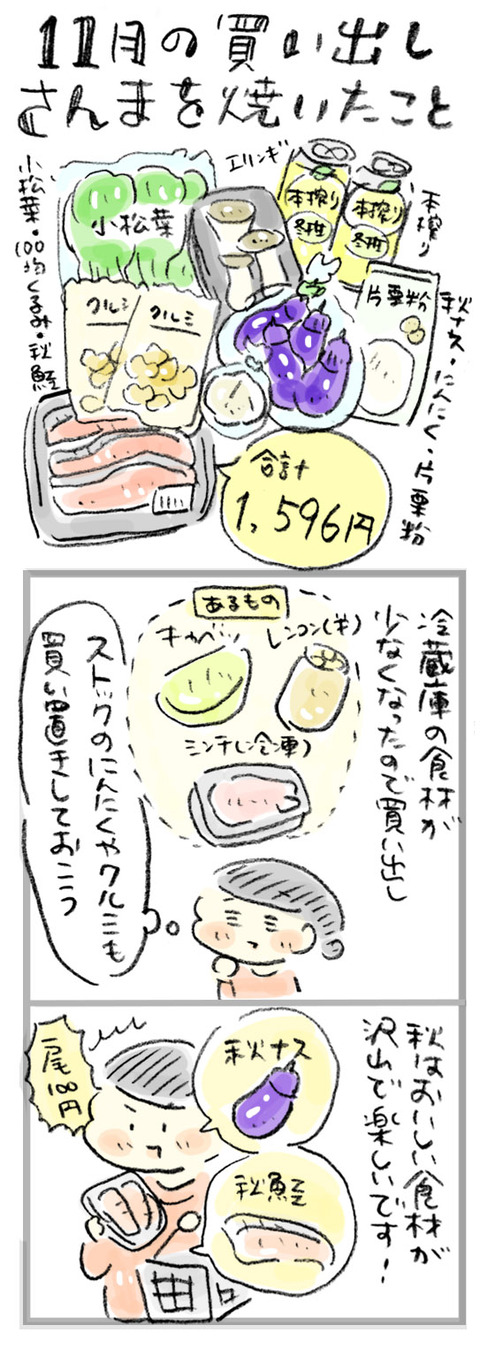 11月の買い出し
さんまを焼いたこと
小松菜・100均くるみ・秋鮭
小松菜
エリンギ
本搾り
冬柑
本搾り
冬柑
本搾り
クルミ
クルミ
片栗粉
秋ナス・にんにく・片栗粉
合計
1,596円
冷蔵庫の食材が
少なくなったので買い出し
あるもの
キャベツ
レンコン(半)
ミンチ(冷凍)
ストックのにんにくやクルミも
買い置きしておこう
秋はおいしい食材が
沢山で楽しいです!
秋ナス
秋鮭
一尾
100円